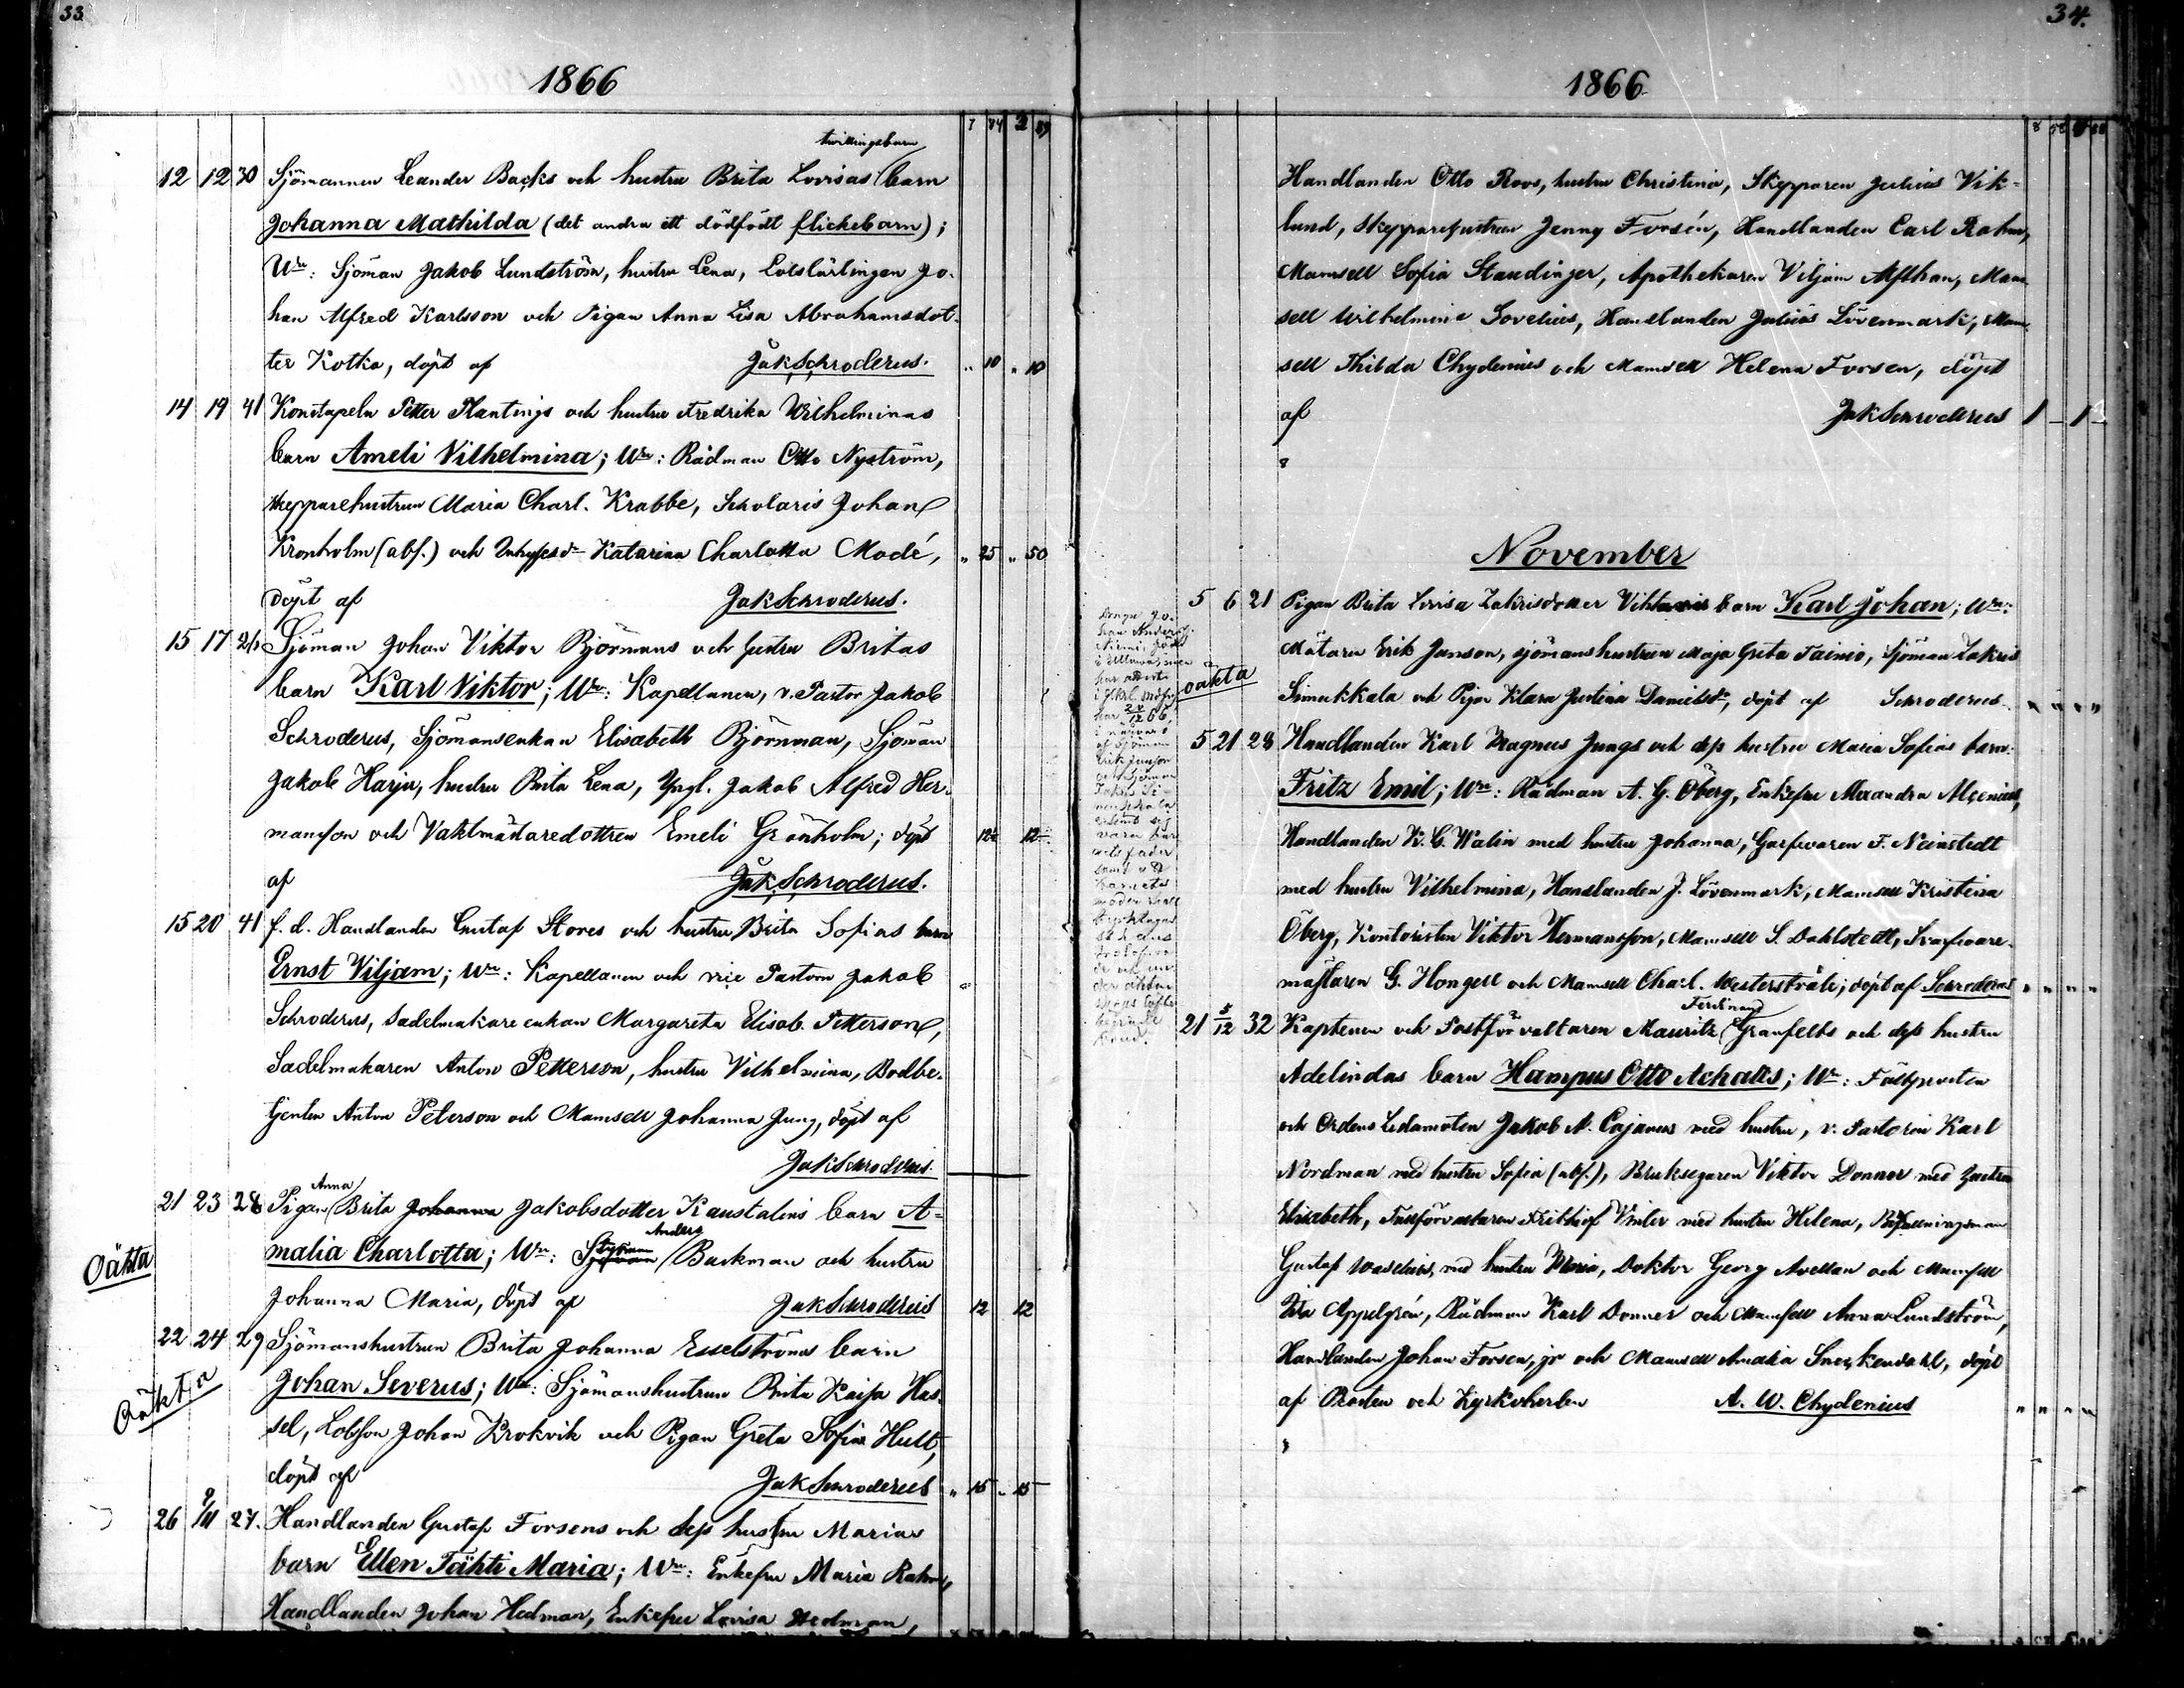 33.
1866
7 84 2 89
twillingsbarn
12 12 30 Sjömannen Leander Backs och hustru Brita Lovisas barn
Johanna Mathilda (det andra ett dödfödt flickebarn);
Wn: Sjöman Jakob Lundström, hustru Lena, Lotslärlingen Jo-
han Alfred Karlsson och Pigan Anna Lisa Abrahamsdot-
ter Kotka, döpt af JakSchroderus. " 10 " 10
14 19 41 Konstapeln Petter Plantings och hustru Fredrika Wilhelminas
barn Ameli Vilhelmina; Wn: Rådman Otto Nyström,
skepparehustrun Maria Charl. Krabbe, Scholaris Johan
Kronholm (abs.) och Katarina Charlotta Modé, " 25 " 50
döpt af JakSchroderus.
15 17 Sjöman Johan Viktor Björnmans och hustru Britas
barn Karl Viktor; Wn: Kapellanen, v. Pastor Jakob
Schroderus, Sjömansenkan Elisabeth Björnman, Sjöman
Jakob Harju, hustru Brita Lena, Yngl. Jakob Alfred Her-
mansson och Vaktmästaredottren Emeli Grönholm; döpt 12 12
af JakSchroderus.
15 20 41 f. d. Handlanden Gustaf Stores och hustru Brita Sofias barn
Ernst Viljam; Wn: Kapellanen och vice Pastorn Jakob
Schroderus, Sadelmakare enkan Margareta Elisab. Petterson,
Sadelmakaren Anton Petterson, hustru Vilhelmina, Bodbe-
tjenten Anton Peterson och Mamsell Johanna Jung, döpt af
JakSchroderus.
Anna
21 23 28 Pigan Brita Johanna Jakobsdotter Kaustalins barn A-
Anders
malia Charlotta; Wn: Backman och hustru
Oäkta
Johanna Maria, döpt af JakSchroderus 12 12
22 24 29 Sjömanshustrun Brita Johanna Esselströms barn
Oäkta
Johan Severus; Wn: Sjömanshustrun Brita Kajsa Has-
sel, Lotsson Johan Krokvik och Pigan Greta Sofia Hult,
döpt af JakSchroderus " 15 " 15
26 9/11 27. Handlanden Gustaf Forsens och dess hustru Marias
barn Ellen Tähti Maria; Wn: Enkefru Maria Rahm,
Handlanden Johan Hedman, Enkefru Lovisa Hedman,
34.
1866
Handlanden Otto Roos, hustru Christina, Skepparen Julius Vik-
lund, Skepparehustrun Jenny Forsén, Handlanden Carl Rahm,
Mamsell Sofia Staudinger, Apothekaren Viljam Alfthan, Mam-
sell Wilhelmina Sovelius, Handlanden Julius Lövenmark, Mam-
sell Thilda Chydenius och Mamsell Helena Forsen, döpt
af JakSchroderus 1 — 1 —
November
5 6 21 Pigan Brita Lovisa Zakrisdotter barn Karl Johan; Wn:
Mätaren Erik Janson, sjömanshustrun Maja Greta Tainio, Sjöman Zakris
oäkta
Simukkala och Pigan Klara Justina Danielsdr, döpt af Schroderus " " " "
5 21 28 Handlanden Karl Magnus Jungs och dess hustru Maria Sofias barn
Fritz Emil; Wn: Rådman A. G. Öberg, Enkefru Alexandra Alcenius,
Handlanden K. G. Walin med hustru Johanna, Garfvaren F. Neinstedt
med hustru Vilhelmina, Handlanden J. Lövenmark, Mamsell Kristina
Öberg, Kontoristen Viktor Hermansson, Mamsell S. Dahlstedt, Svarfvare-
mästaren G. Hongell och Mamsell Charl. Westerstråle; döpt af Schroderus " " " "
Ferdinand
21 5/12 32 Kaptenen och Postförvaltaren Mauritz Granfelts och dess hustru
Adelindas barn Hampus Otto Achates; Wn: Fältprosten
och Ordens Ledamoten Jakob A. Cajanus med hustru, v. Pastorn Karl
Nordman med hustru Sofia (abs.), Bruksegaren Viktor Donner med hustru
Elisabeth, Tullförvaltaren Frithiof Vinter med hustru Helena, Befallningsman
Gustaf Waselius, med hustru Maria, Doktor Georg Avellan och Mamsell
Appelgrén, Rådman Karl Donner och Mamsell Anna Lundström,
Handlanden Johan Forsen, jr och Mamsell Amalia Sneckendahl, döpt
af Prosten och Kyrkoherden A. W. Chydenius " " " "